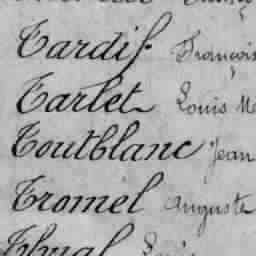 Tardif François
Tarlet Louis M
Toutblanc Jean
Tromel Auguste